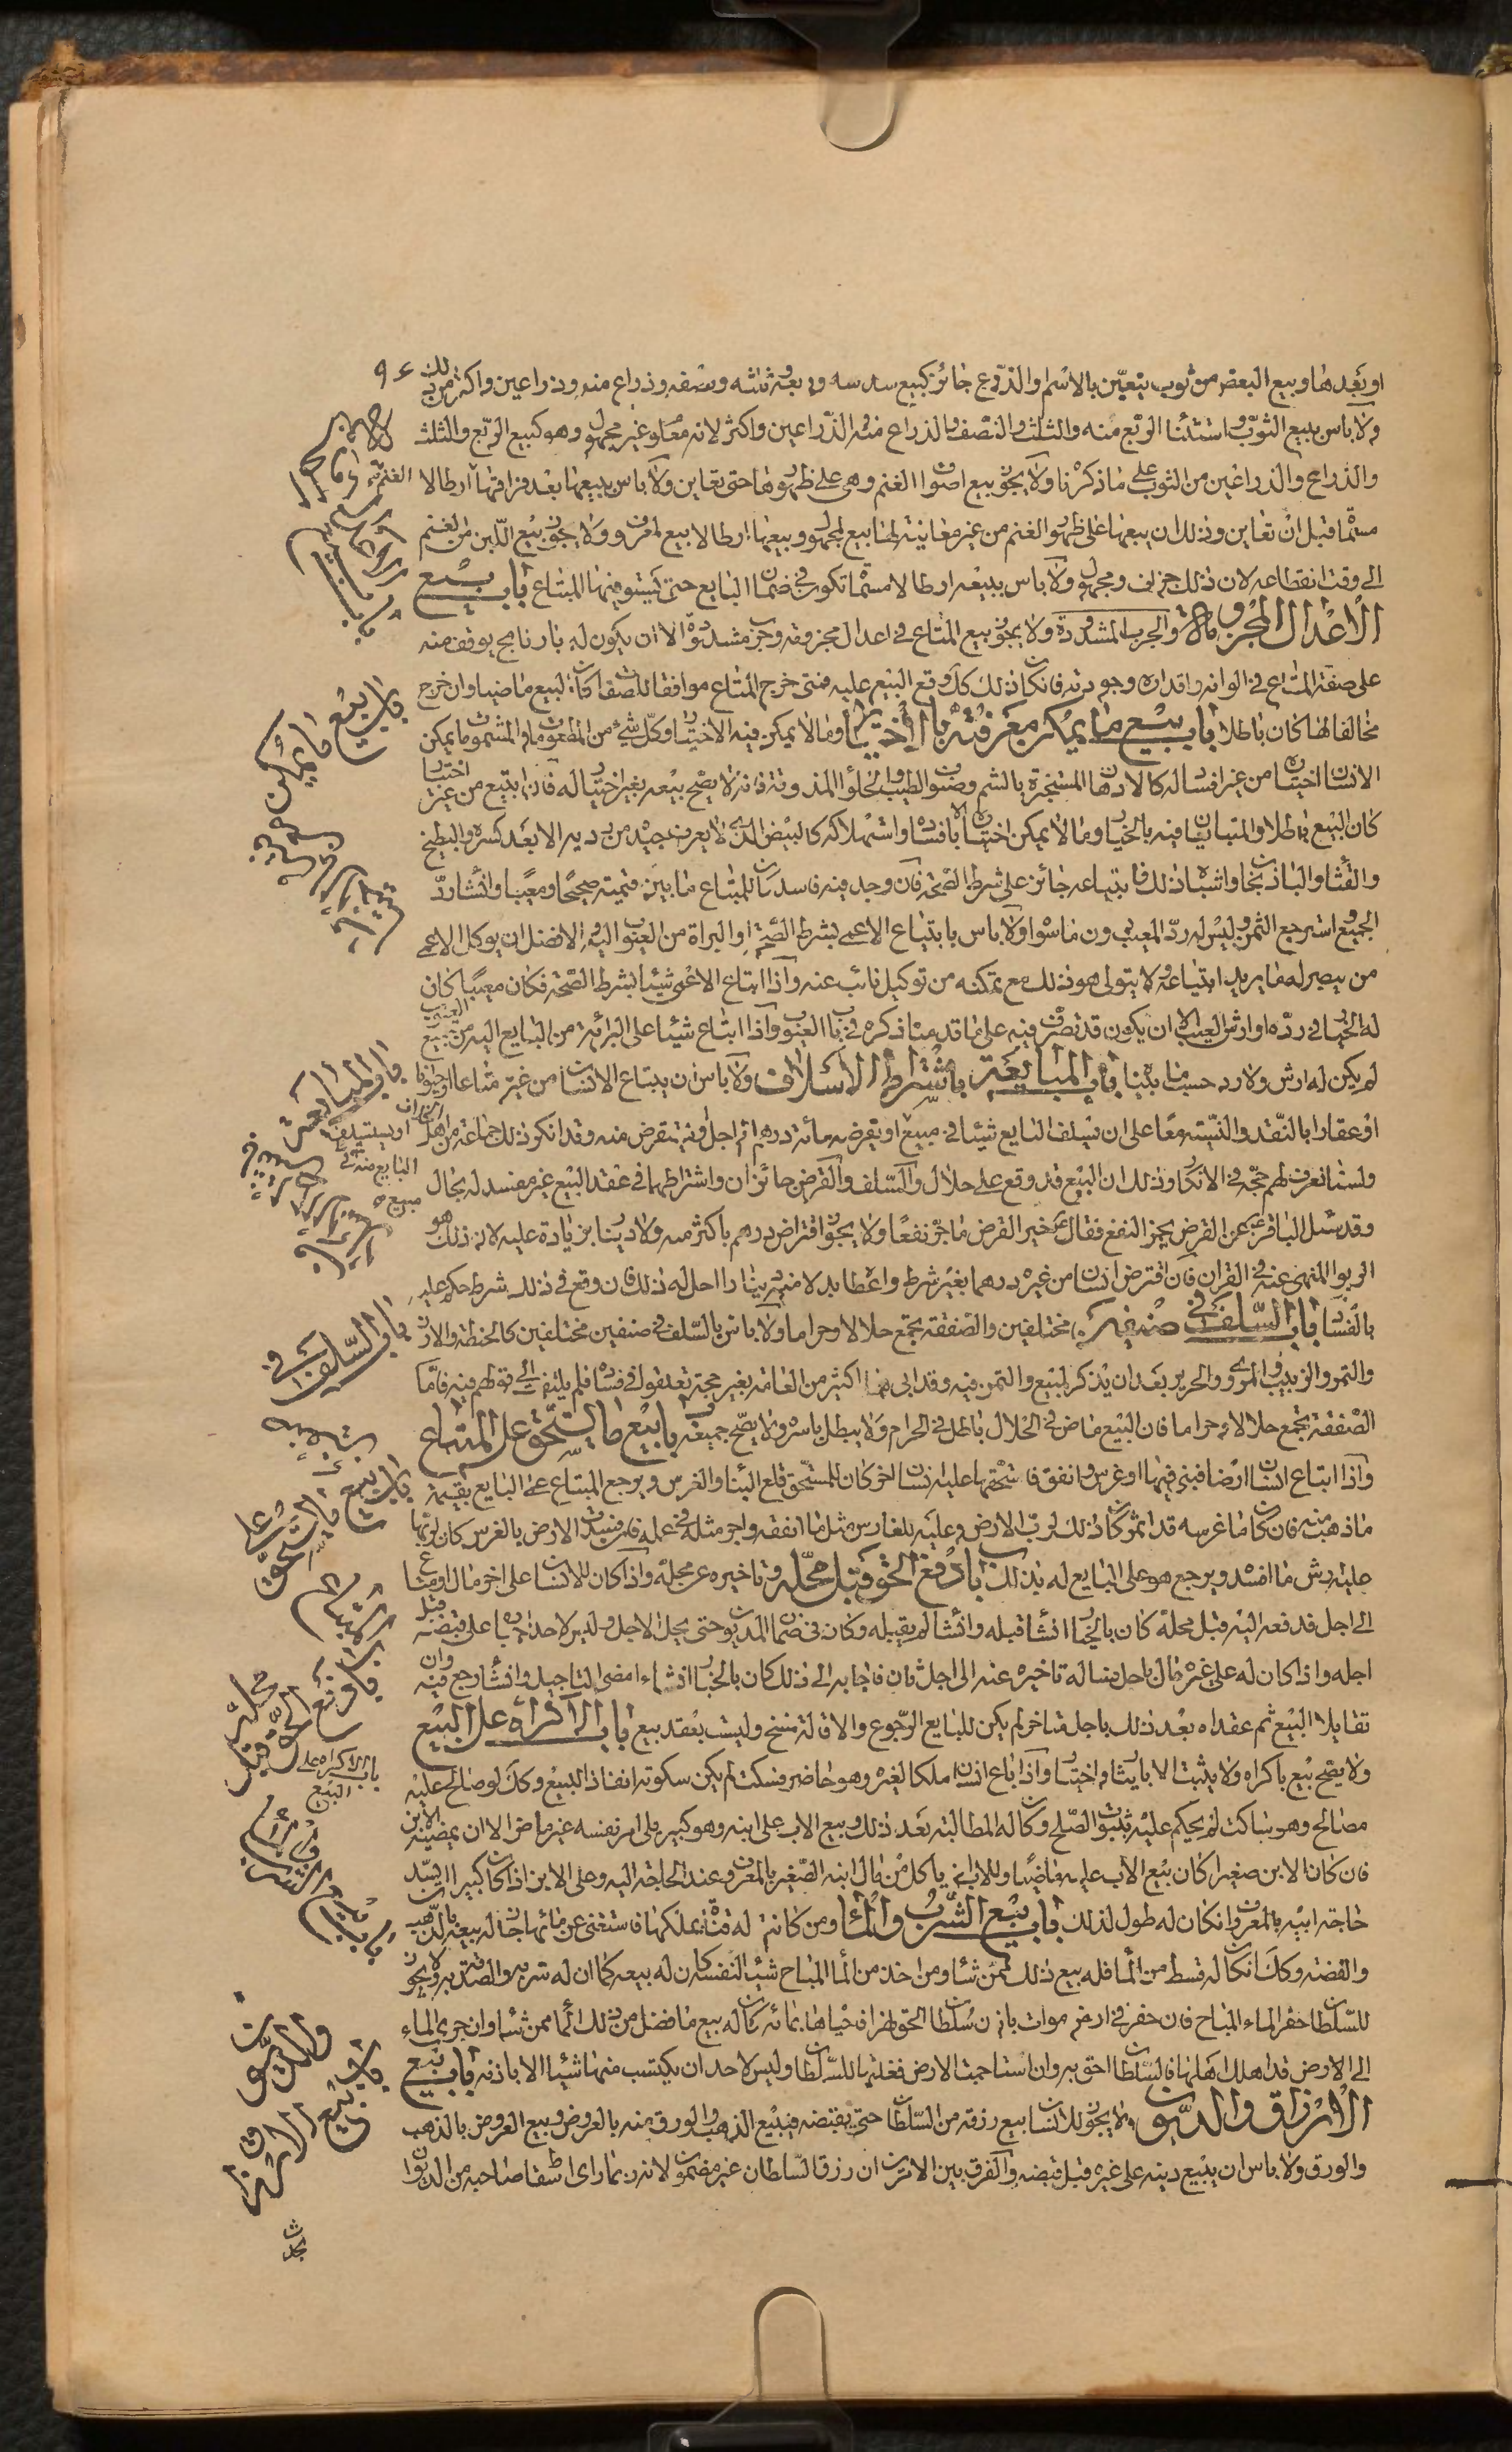 ٩٤
او بعدها وبيع البعض من ثوب بتعيين بالاسم والذرع جائز كبيع سدسه وربعه وثلثه ونصفه وذراع منه وذراعين واكثر من ذلك
ولا باس ببيع الثوب واستثنا الربع منه والثلث والنصف والذراع منه والذراعين واكثر لانه معلوم غير مجهول وهو كبيع الربع والثلث
والذراع والذراعين من الثوب على ما ذكرنا ولا يجوز بيع اصواف الغنم وهي على ظهورها حتى تعاين ولا باس ببيعها بعد ارطالا
قبل ان تعاين وذلك ان بيعها على ظهور الغنم من غير معاينة لها بيع المجهول وبيعها ارطالا بيع المعروف ولا يجوز بيع اللبن من الغنم
الى وقت انقطاعه لان ذلك جزاف ومجهول ولا باس ببيعه ارطالا مسماة تكون في ضمان البايع حتى يستوفيها المبتاع باب بيع
الاعدال المخزومة والجرب المشدودة ولا يجوز بيع المتاع في اعدال مخزومة وجرب مشدودة الا ان يكون له بارنامج يوقف منه
على صفة المتاع في الوانه واقداره وجودته فان كان ذلك كذلك وقع البيع عليه فمتى خرج المتاع موافقا للصفات كان البيع ماضيا وان خرج
مخالفا لها كان باطلا باب بيع ما يمكن معرفته بالاختبار وما لا يمكن فيه الاختبار وكل شيء من المطعوم والمشموم يمكن
الانسان اختباره من غير افساد له كالادهان المستخبرة بالشم وصنوف الطيب والحلواء المذوقة فانه لا يصح بيعه بغير اختبار له فان ابتيع من غير اختبار
كان البيع باطلا والمتبايعان فيه بالخيار وما لا يمكن اختباره الا بافساده واستهلاكه كالبيض الذي لا يعرف جيده من رديه الا بعد كسره والبطيخ
والقثاء والباذنجان واشباه ذلك فابتياعه جائز على شرط الصحة فان وجد فيه فاسد كان للمبتاع ما بين قيمته صحيحا ومعيبا وان شاء رد
الجميع واسترجع الثمن وليس له رد المعيب دون ما سواه ولا باس بابتياع الاعمى بشرط الصحة او البراة من العيوب والافضل ان يوكل الاعمى
من يبصر له ما يريد ابتياعه ولا يتولى هو ذلك مع تمكنه من توكيل نائب عنه واذا ابتاع الاعمى شيئا بشرط الصحة فكان معيبا كان
له الخيار في رده او ارش العيب الا ان يكون قد تصرف فيه على ما قدمنا ذكره في باب العيوب واذا ابتاع شيئا على البرائة من البايع اليه من جميع العيوب
لم يكن له ارش ولا رد حسب ما بيناه باب المبايعة باشتراط الاسلاف ولا باس ان يبتاع الانسان من غيره متاعا او حيوانا
او عقارا بالنقد والنسيئة معا على ان يسلف البايع شيئا في مبيع او يقرضه مائة درهم الى اجل او يستقرض منه وقد انكر ذلك جماعة من اهل الخلاف
ولسنا نعرف لهم حجة في الانكار وذلك ان البيع قد وقع على حلال والسلف والقرض جائزان واشتراطهما في عقد البيع غير مفسد له بحال
وقد سئل الباقر ع عن القرض يجر النفع فقال ع خير القرض ما جر نفعا ولا يجوز اقتراض درهم باكثر منه ولا دينار بزيادة عليه لان ذلك هو
الربوا المنهي عنه في القران فان اقترض انسان من غيره درهما بغير شرط واعطاه بدلا منه دينارا حل له ذلك فان وقع في ذلك شرط حكم عليه
بالفساد باب السلف في صنفين مختلفين والصفقة تجمع حلالا وحراما ولا باس بالسلف في صنفين مختلفين كالحنطة والارز
والتمر والزبيب والمروي والحرير بعد ان يذكر المبيع والثمن فيه وقد ابى هذا اكثر من العامة بغير حجة تعلقوا بها في فساده فلم يلتفت الى قولهم فيه فاما
الصفقة تجمع حلالا وحراما فان البيع ماض في الحلال باطل في الحرام ولا يبطل باسره ولا يصح جميعه باب بيع ما يستحق على المبتاع
واذا ابتاع انسان ارضا فبنى فيها او غرس وانفق فاستحقها عليه انسان اخر كان للمستحق قلع البناء والغرس ويرجع المبتاع على البايع بقيمة
ما ذهب منه فان كان ما غرسه قد اثمر كان ذلك لرب الارض وعليه للغارس مثل ما انفقه واجر مثله في عمله فان فسدت الارض بالغرس كان لربها
عليه ارش ما افسد ويرجع هو على البايع له بذلك باب دفع الحق قبل محله وتاخيره عن محله واذا كان للانسان على اخر مال او متاع
الى اجل فدفعه اليه قبل محله كان بالخيار ان شاء قبله وان شاء لم يقبله وكان في ضمان المديون حتى يحل الاجل وليس لاحد اجباره على قبضه قبل
اجله واذا كان له على غيره مال باجل فساله تاخيره عنه الى اجل ثان فاجابه الى ذلك كان بالخيار ان شاء امضى التاجيل وان شاء رجع فيه وان
تقايلا البيع ثم عقداه بعد ذلك باجل متاخر لم يكن للبايع الرجوع والاقالة فسخ وليست بعقد بيع باب الاكراه على البيع
ولا يصح بيع باكراه ولا يثبت الا بايثار واختيار واذا باع انسان ملكا لغيره وهو حاضر فسكت لم يكن سكوته انفاذا للبيع وكذلك لو صالح عليه
مصالح وهو ساكت لم يحكم عليه بثبوت الصلح وكان له المطالبة بعد ذلك وبيع الاب على ابنه وهو كبير يلي امر نفسه غير ماض الا ان يمضيه الابن
فان كان الابن صغيرا كان بيع الاب عليه ماضيا وللاب ان ياكل من مال ابنه الصغير بالمعروف عند الحاجة اليه وعلى الابن اذا كان كبيرا ان يسد
حاجة ابيه بالمعروف ان كان له طول لذلك باب بيع الشرب والماء ومن كانت له قناة يملكها فاستغنى عن مائها جاز له بيعه بالذهب
والفضة وكذلك ان كان له قسط من الماء فله بيع ذلك ممن شاء ومن اخذ من الماء المباح شيئا لنفسه كان له بيعه كما ان له شربه والصدقة به ولا يجوز
للسلطان حظر الماء المباح فان حفر في ارض موات باذن سلطان الحق نهرا فاحياها بمائه كان له بيع ما فضل من ذلك الماء ممن شاء وان جرى الماء
الى الارض قد اهلك اهلها فالسلطان احق به وان استاجمت الارض فغلتها للسلطان وليس لاحد ان يكتسب منها شيئا الا باذنه باب بيع
الارزاق والديون ولا يجوز للانسان بيع رزقه من السلطان حتى يقبضه فيبيع الذهب والورق منه بالعروض ويبيع العروض بالذهب
والورق ولا باس ان يبيع دينه على غيره قبل قبضه والفرق بين الامرين ان رزق السلطان غير مضمون لانه ربما راى اسقاط صاحبه من الديوان
باب بيع ما يمكن معرفته
باب المبايعة
او يستسلف
البايع منه في
مبيع
باب السلف في
باب بيع ما يستحق على
باب دفع الحق قبل محله
باب الاكراه على
البيع
باب بيع الارزاق
والديون